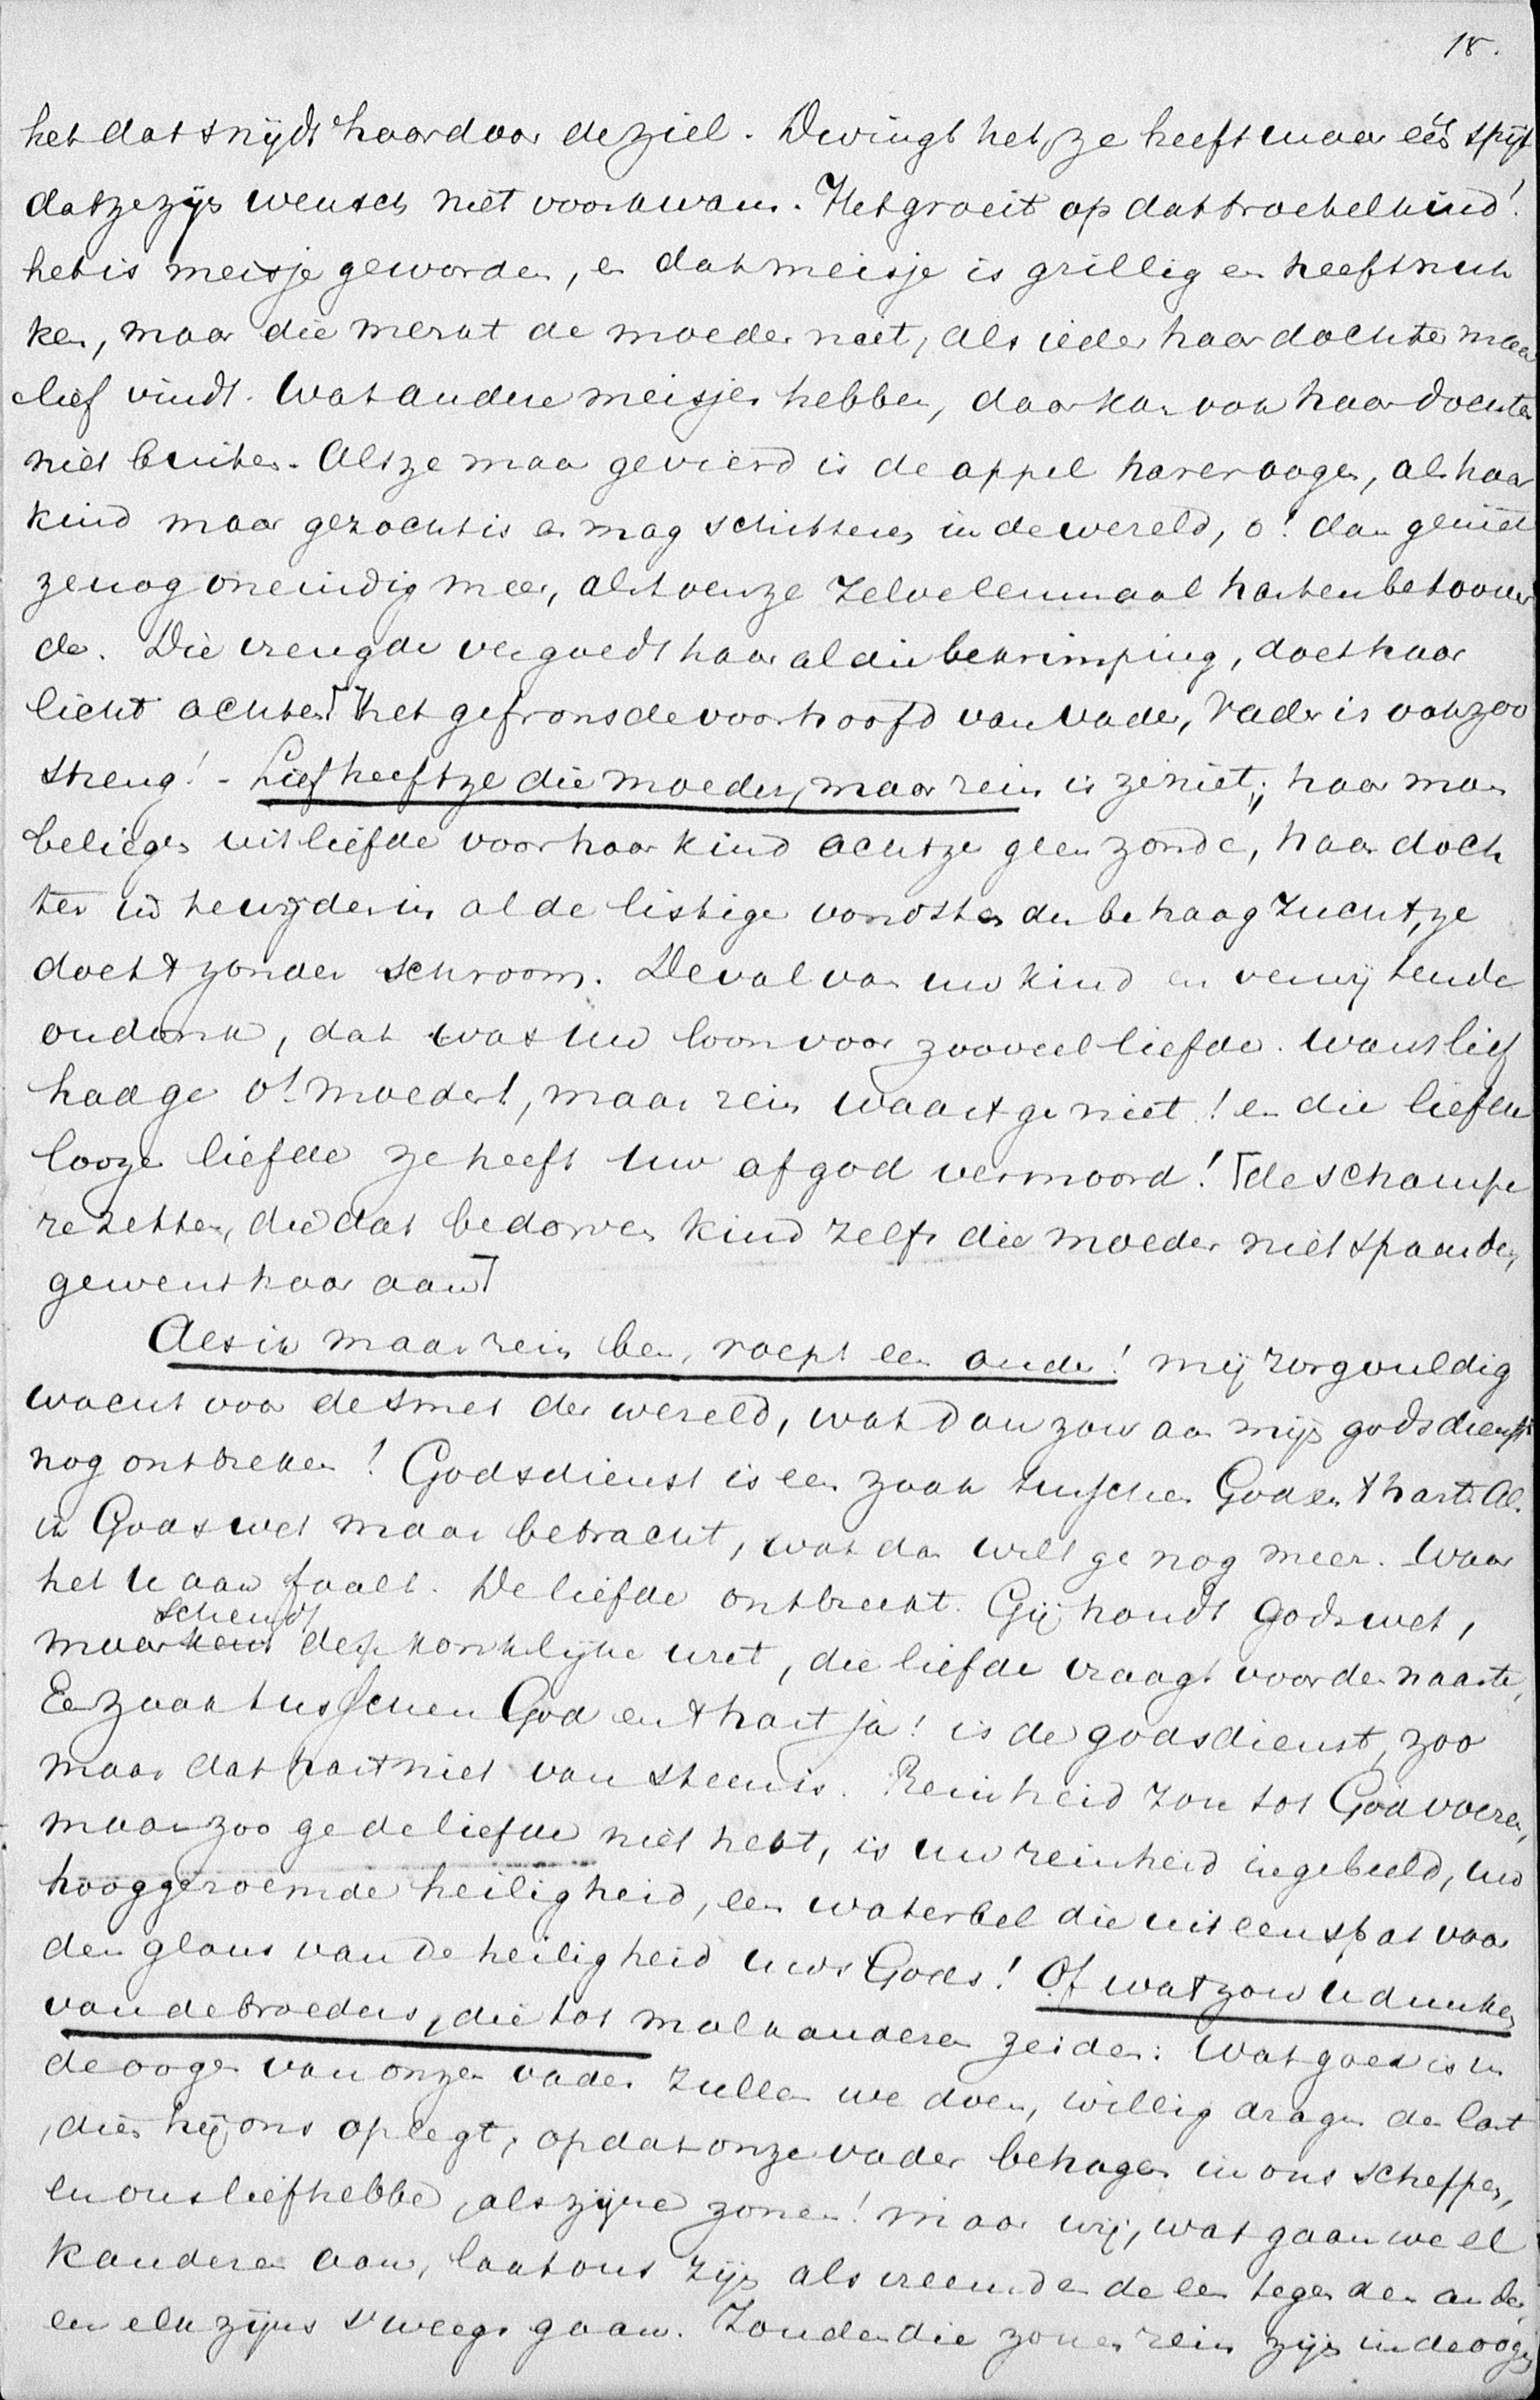 18.
het dat snijdt haar door de ziel. Dwingt het, ze heeft maar één spijt
dat ze zijn wensch niet voorkwam. Het groeit op dat troetelkind!
het is meisje geworden, en dat meisje is grillig en heeft nuk
ken, maar die merkt de moeder niet, als ieder haar dochter maar
lief vindt. Wat andere meisjes hebben, daar kan ook haar dochter
niet buiten. Als ze maar gevierd is de appel harer oogen, als haar
kind maar gezocht is en mag schitteren in de wereld, o! dan geniet
ze nog oneindig meer, als toen ze zelve eenmaal harten betoover
de. Die vreugde vergoedt haar al die bekrimping, doet haar
licht achten het gefronsde voorhoofd van vader, Vader is ook zoo
streng! - Lief heeft ze die moeder, maar rein is ze niet; haar man
beliegen uit liefde voor haar kind acht ze geen zonde, haar doch
ter in te wijden in al de listige vondsten der behaagzucht, ze
doet 't zonder schroom. De val van uw kind en verwijtende
ondank, dat was uw loon voor zooveel liefde. Want lief
had ge o! moeder!, maar rein waart ge niet! en die liefde
looze liefde ze heeft uw afgod vermoord! de schampe
re zetten, die dat bedorven kind zelfs die moeder niet spaarde,
gewent haar aan
Als ik maar rein ben, roept een ander! mij zorgvuldig
wacht voor de smet der wereld, wat dan zou aan mijn godsdienst
nog ontbreken! Godsdienst is een zaak tusschen God en 't hart. Als
ik Gods wet maar betracht, wat dan wilt ge nog meer. Waar
het u aan faalt. De liefde ontbreekt. Gij houdt Gods wet,
schendt
maar kent deze koninklijke wet, die liefde vraagt voor den naaste,
Een zaak tusschen God en 't hart ja! is de godsdienst, zoo
maar dat hart niet van steen is. Reinheid zou tot God voeren,
maar zoo ge de liefde niet hebt, is uw reinheid ingebeeld, uw
hooggeroemde heiligheid, een waterbel die uiteenspat voor
den glans van de heiligheid uws Gods! Of wat zou u dunken
van de broeders, die tot malkanderen zeiden: Wat goed is in
de oogen van onzen vader zullen we doen, willig dragen den last
, dien hij ons oplegt, opdat onze vader behagen in ons scheppen,
en ons liefhebbe, als zijne zonen! maar wij, wat gaan we el
kanderen aan, laat ons zijn als vreemden de een tegen den ander,
en elk zijns s'weegs gaan. Zouden die zonen rein zijn in de oogen